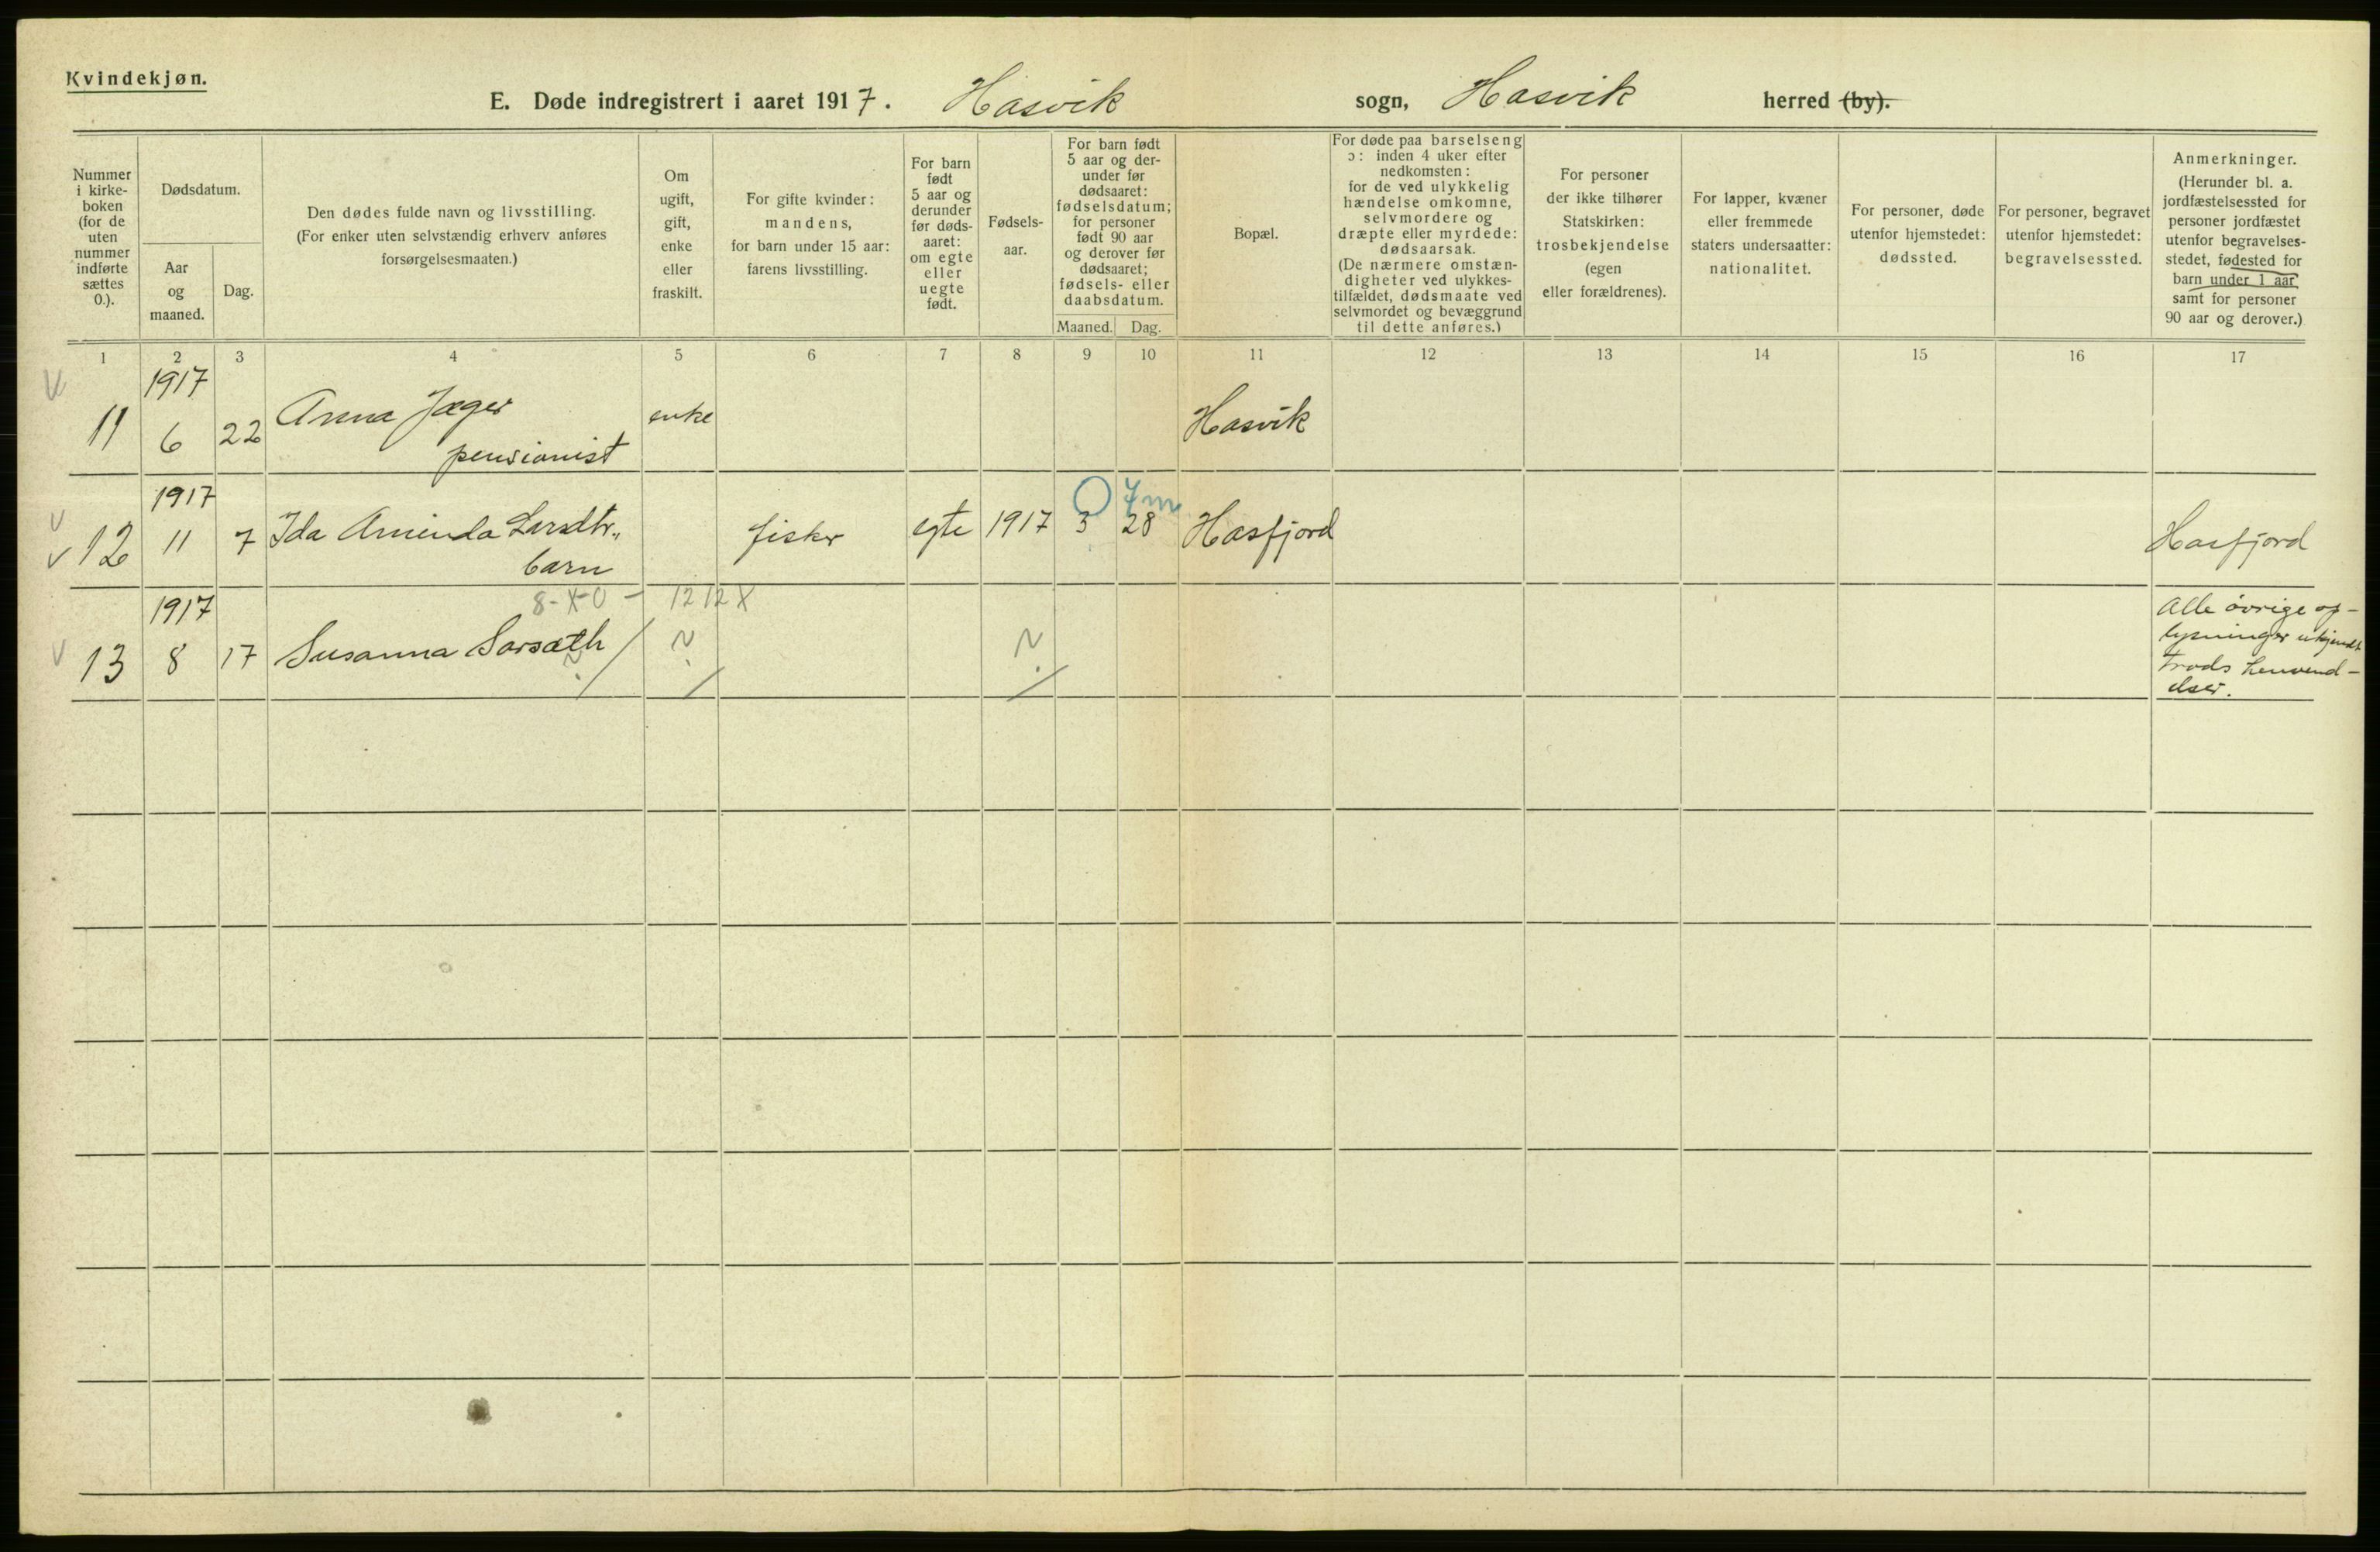 Kvindekjøn.
E. Døde indregistrert i aaret 1917. Hasvik sogn, Hasvik herred (by).
Nummer
i kirke-
boken
(for de
uten
nummer
indførte
sættes
0.).
Dødsdatum.
Aar
og
maaned.
Dag.
Den dødes fulde navn og livsstilling.
(For enker uten selvstændig erhverv anføres
forsørgelsesmaaten.)
Om
ugift,
gift,
enke
eller
fraskilt.
For gifte kvinder:
mandens,
for barn under 15 aar:
farens livsstilling.
For barn
født
5 aar og
derunder
før døds-
aaret:
om egte
eller
uegte
født.
Fødsels-
aar.
For barn født
5 aar og der-
under før
dødsaaret:
fødselsdatum;
for personer
født 90 aar
og derover før
dødsaaret;
fødsels- eller
daabsdatum.
Maaned. Dag.
Bopæl.
For døde paa barselseng
ɔ: inden 4 uker efter
nedkomsten:
for de ved ulykkelig
hændelse omkomne,
selvmordere og
dræpte eller myrdede:
dødsaarsak.
(De nærmere omstæn-
digheter ved ulykkes-
tilfældet, dødsmaate ved
selvmordet og bevæggrund
til dette anføres.)
For personer
der ikke tilhører
Statskirken:
trosbekjendelse
(egen
eller forældrenes).
For lapper, kvæner
eller fremmede
staters undersaatter:
nationalitet.
For personer, døde
utenfor hjemstedet:
dødssted.
For personer, begravet
utenfor hjemstedet:
begravelsessted.
Anmerkninger.
(Herunder bl. a.
jordfæstelsessted for
personer jordfæstet
utenfor begravelses-
stedet, fødested for
barn under 1 aar
samt for personer
90 aar og derover.)
1 2 3 4 5 6 7 8 9 10 11 12 13 14 15 16 17
1917
11 6 22 Anna Jæger enke Hasvik
pensionist
1917 7 m
12 11 7 Ida Aminda Larsdtr., fisker egte 1917 3 28 Hasfjord Hasfjord
barn
1917
13 8 17 Susanna Sarsæth
Alle övrige op-
lysninger ukjendt
trods henvend-
elser.